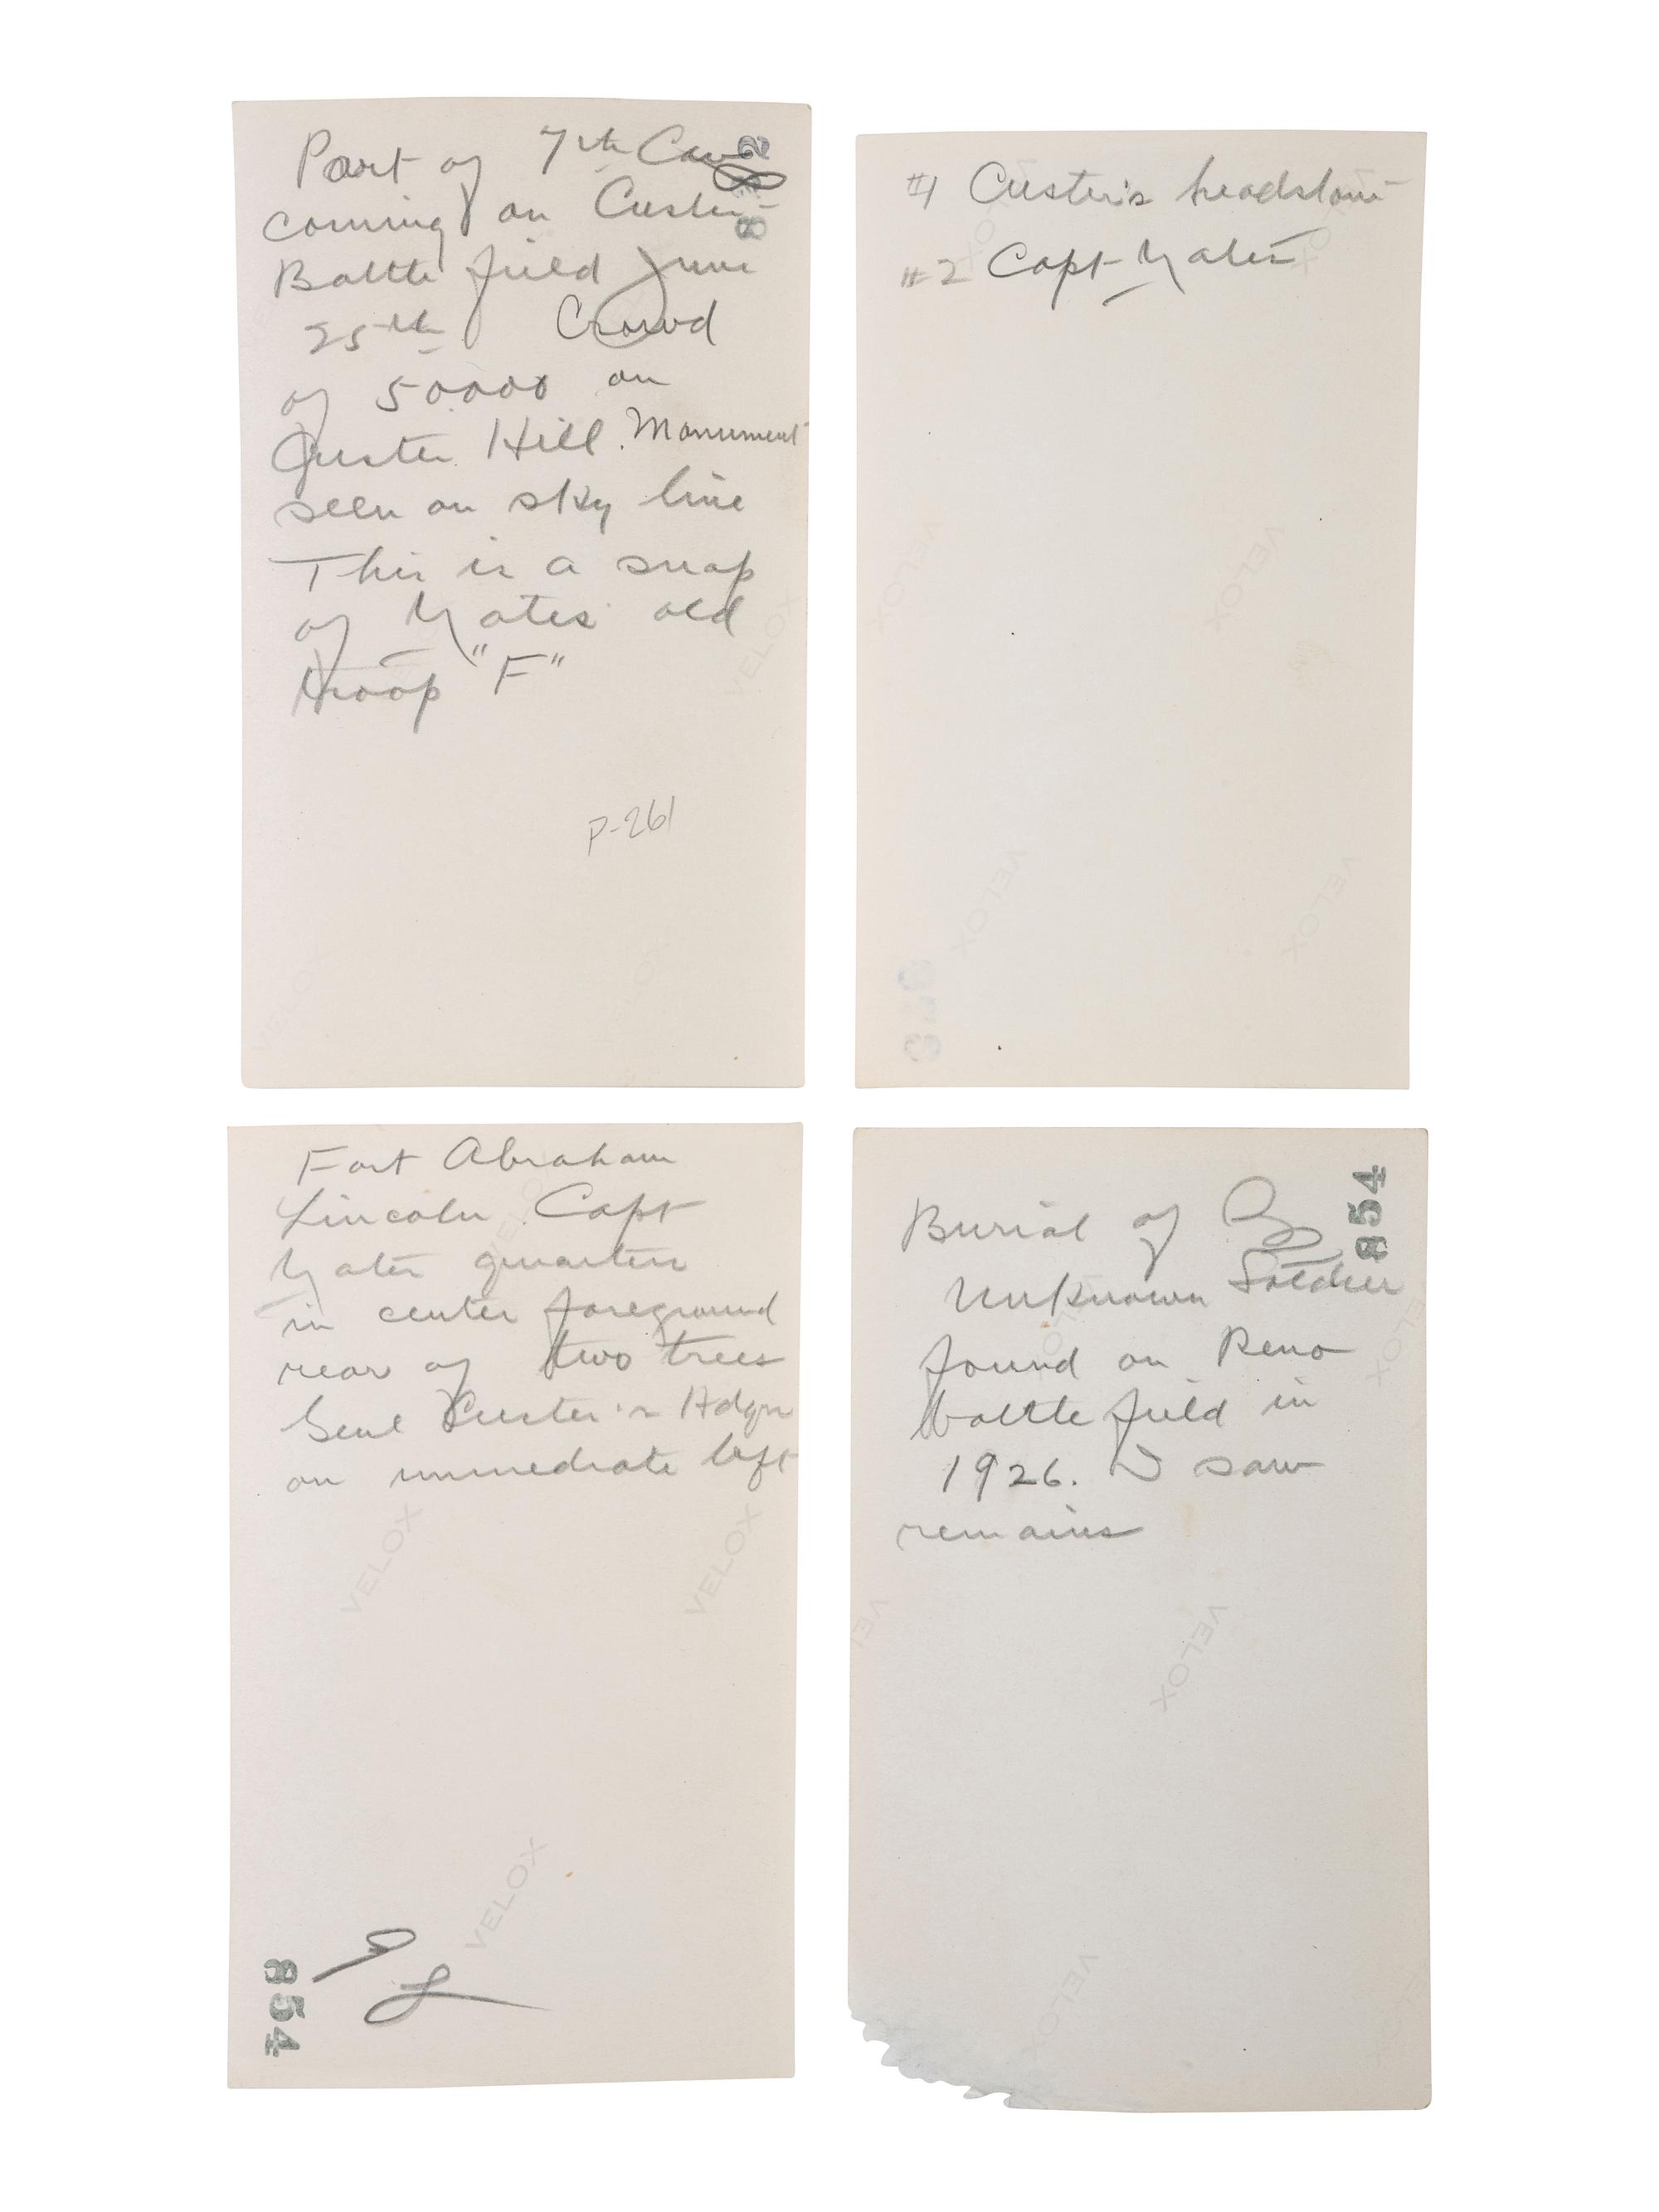 Part of 7th Cav
coming on Custer
Battle field June
25th Crowd
of 50000 on
Custer Hill. Monument
seen on sky line
This is a snap
of Yates old
troop "F"
P-261
#1 Custer's headstone
#2 Capt Yates
Fort Abraham
Lincoln Capt
Yates quarters
in center foreground
rear of two trees
Genl Custer's Hdqrs
on immediate left
854
VELOX
VELOX
VELOX
Burial of
854
Unknown Soldier
found on Reno
battle field in
1926. I saw
remains
VELOX